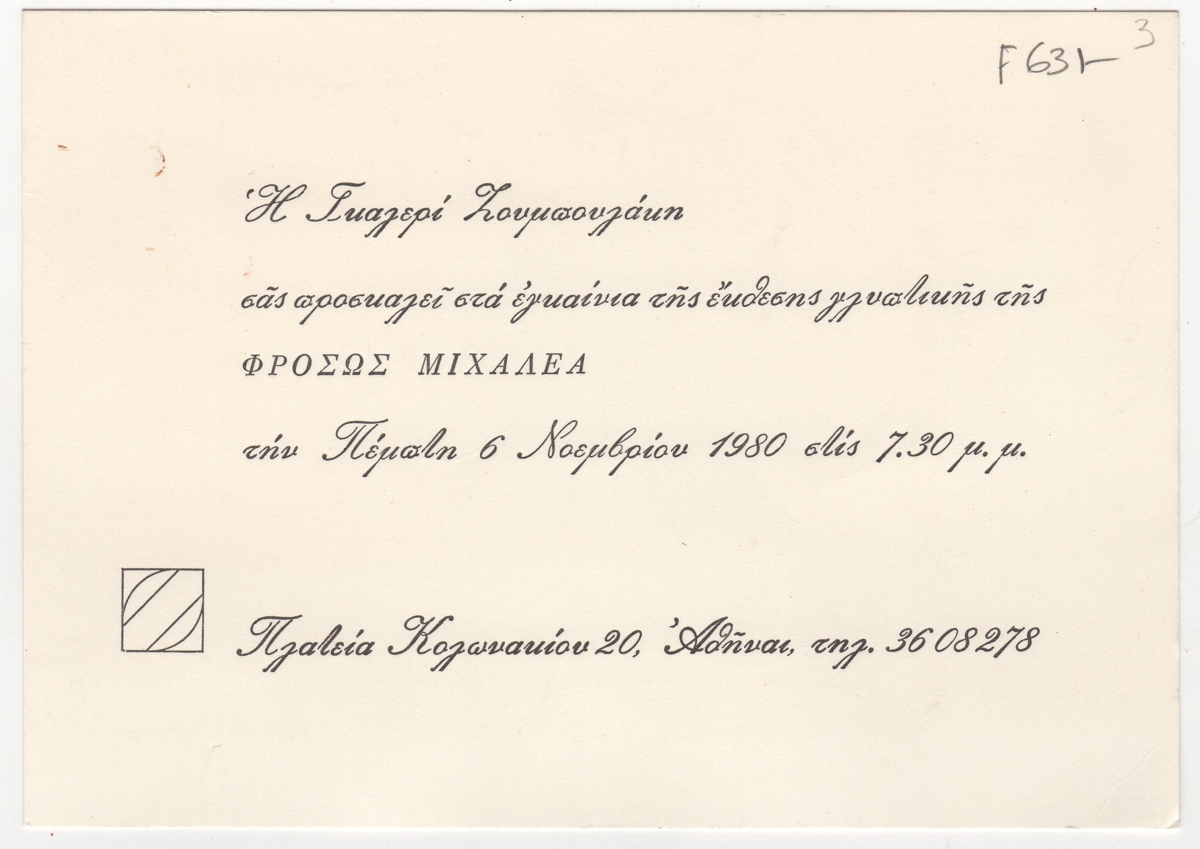 F 631 3
Ἡ Γκαλερί Ζουμπουλάκη
σᾶς προσκαλεῖ στά ἐγκαίνια τῆς ἔκθεσης γλυπτικῆς τῆς
ΦΡΟΣΩΣ ΜΙΧΑΛΕΑ
τήν Πέμπτη 6 Νοεμβρίου 1980 στίς 7.30 μ. μ.
Πλατεία Κολωνακίου 20, Ἀθῆναι, τηλ. 36 08 278